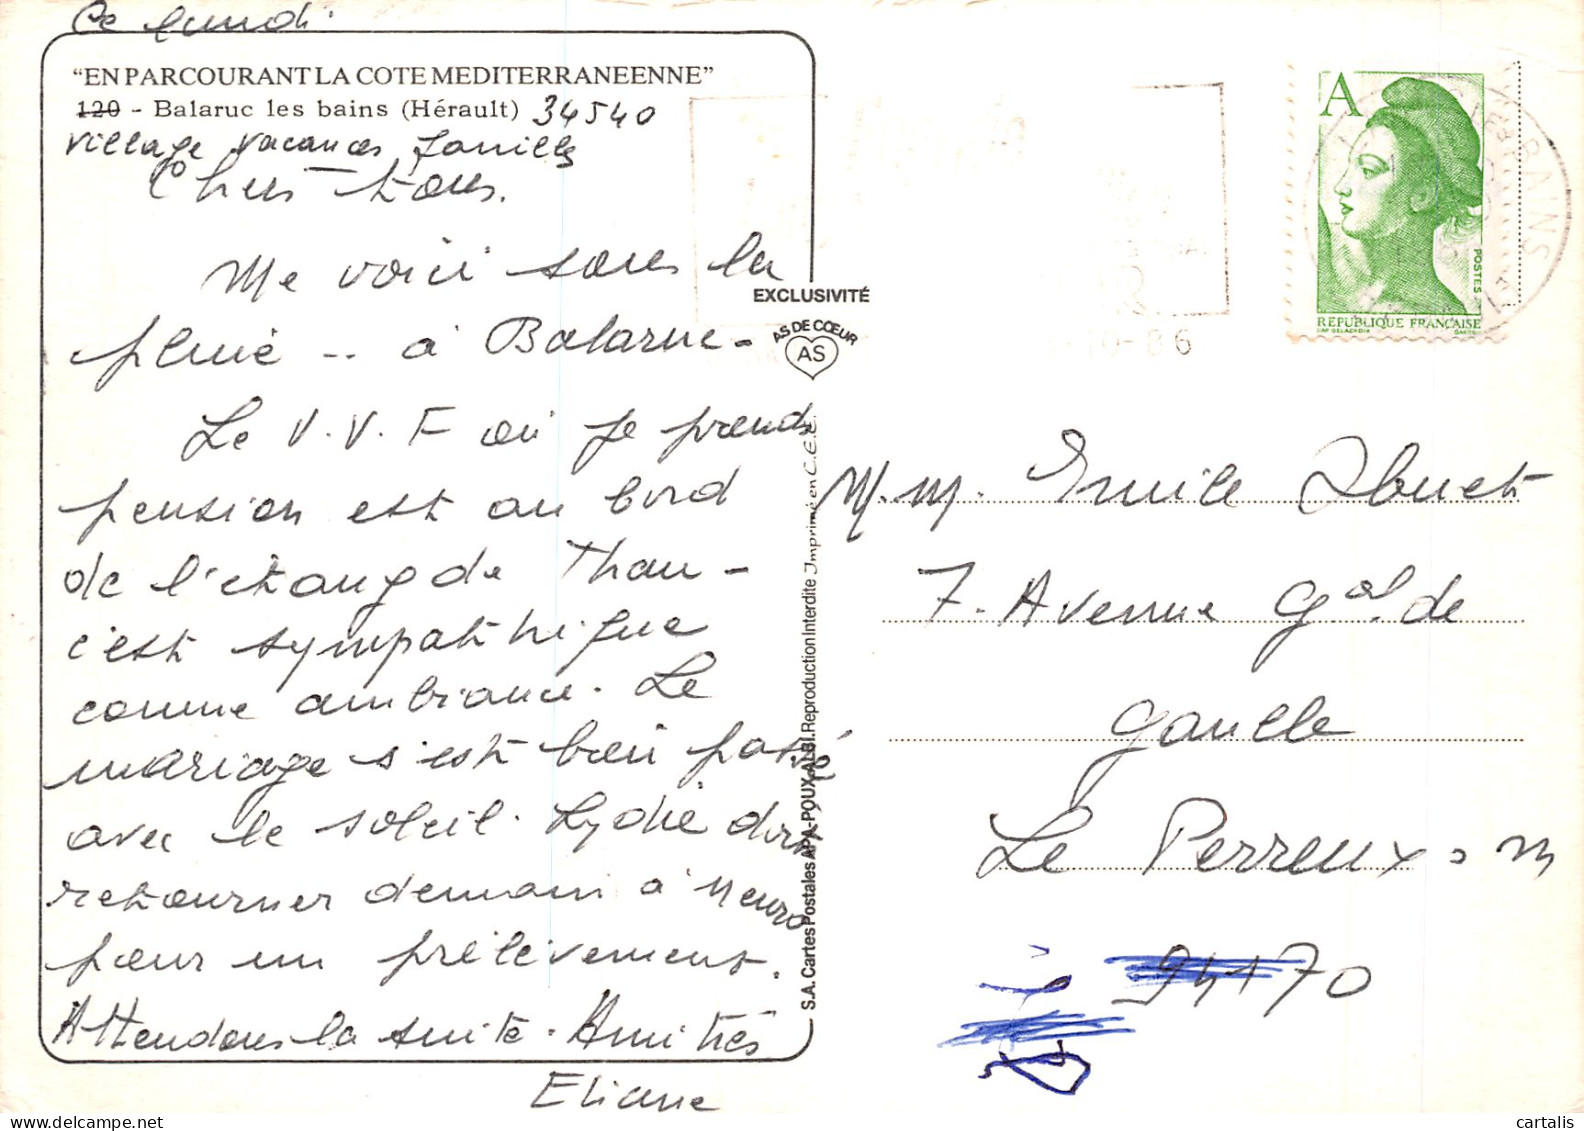 Ce lundi.
"EN PARCOURANT LA COTE MEDITERRANEENNE"
120 - Balaruc les bains (Hérault) 34540
Village Vacances Familles
Chers tous.
Me voici sous la
pluie -- à Balaruc -
Le V.V.F où je prends
pension est au bord
de l'étang de Thau -
c'est sympathique
comme ambiance. Le
mariage s'est bien passé
avec le soleil. Lydie doit
retourner demain à neuro
pour un prélèvement.
Attendons la suite. Amitiés
Eliane
EXCLUSIVITÉ
AS DE CŒUR
AS
S.A. Cartes Postales APA-POUX-ALBI. Reproduction Interdite Imprimé en C.E.E.
10-86
A
POSTES
REPUBLIQUE FRANÇAISE
BAINS
M.M. Emile
7. Avenue Gal. de
Gaulle
Le Perreux s m
94170
cartalis
delcampe.net